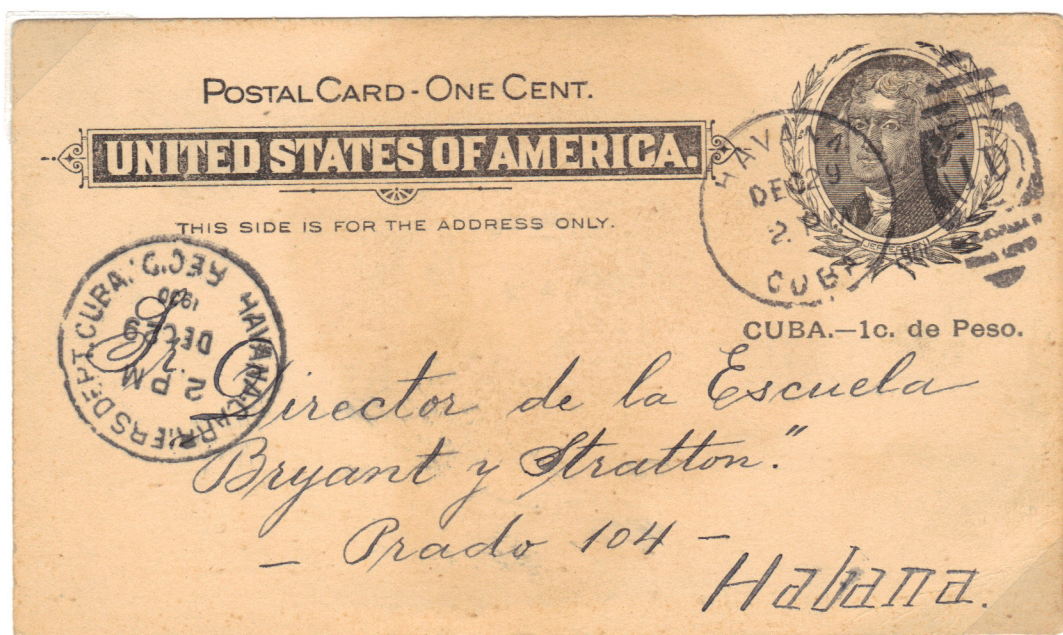 POSTAL CARD - ONE CENT.
UNITED STATES OF AMERICA.
THIS SIDE IS FOR THE ADDRESS ONLY.
HAVANA
DEC 29
2. PM
CUBA
JEFFERSON
CUBA.—1c. de Peso.
HAVANA CARRIERS DEPT. CUBA. REC'D.
2 PM
DEC 29
1900
Sr. Director de la Escuela
Bryant y Stratton."
— Prado 104 —
Habana.